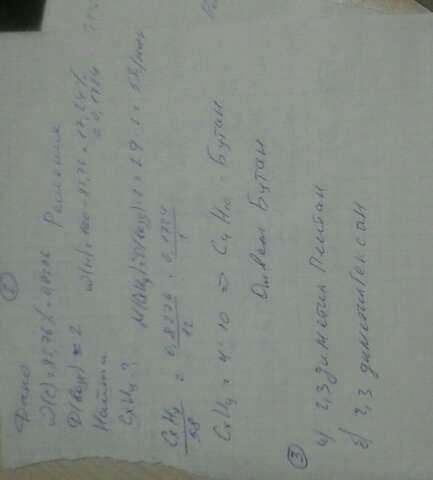 ②
Дано Решение
W(C) = 82,76% = 0,8276
D(возд) = 2 W(H) = 100 - 82,76 = 17,24%
Найти = 0,1724
CxHy ? M(CxHy) = D(возд) = 2 · 29 = 58 г/моль
CxHy / 58 = 0,8276 / 12 : 0,1724 / 1
CxHy = 4 : 10 ⇒ C4H10 Бутан
Ответ Бутан
③
а) 2,3 диметил Пентан
б) 2,3 диметилГексан